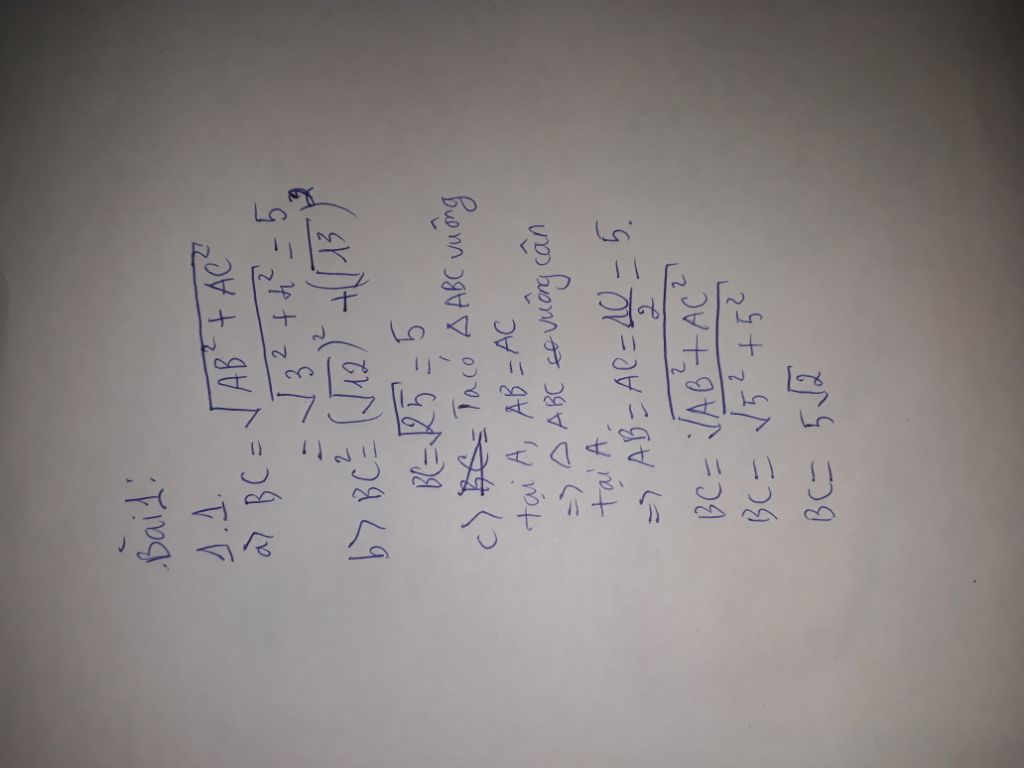 Bài 1:
1.1
a> BC = √(AB² + AC²)
= √(3² + 4²) = 5
b> BC² = (√12)² + (√13)²
BC = √25 = 5
c> Ta có, △ABC vuông
tại A, AB = AC
=> △ABC vuông cân
tại A.
=> AB = AC = 10/2 = 5.
BC = √(AB² + AC²)
BC = √(5² + 5²)
BC = 5√2